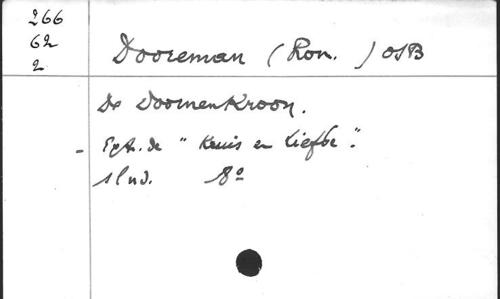 266
62
2
Dooreman (Rom. ) OSB
De Doornenkroon.
- Extr. de "Kruis en Liefde".
slnd. 8º